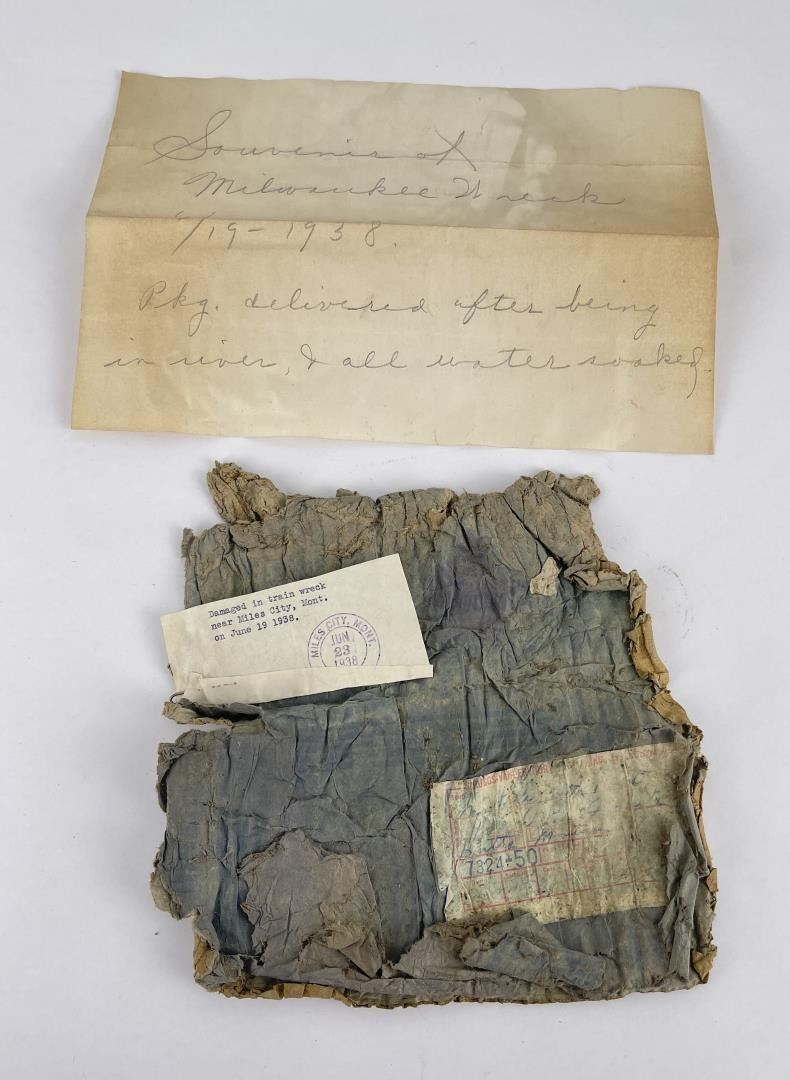 Souvenir of
Milwaukee Wreck
6/19-1938.
Pkg. delivered after being
in river, & all water soaked.
Damaged in train wreck
near Miles City, Mont.
on June 19 1938.
MILES CITY, MONT.
JUN
23
1938
Butte
7824-50